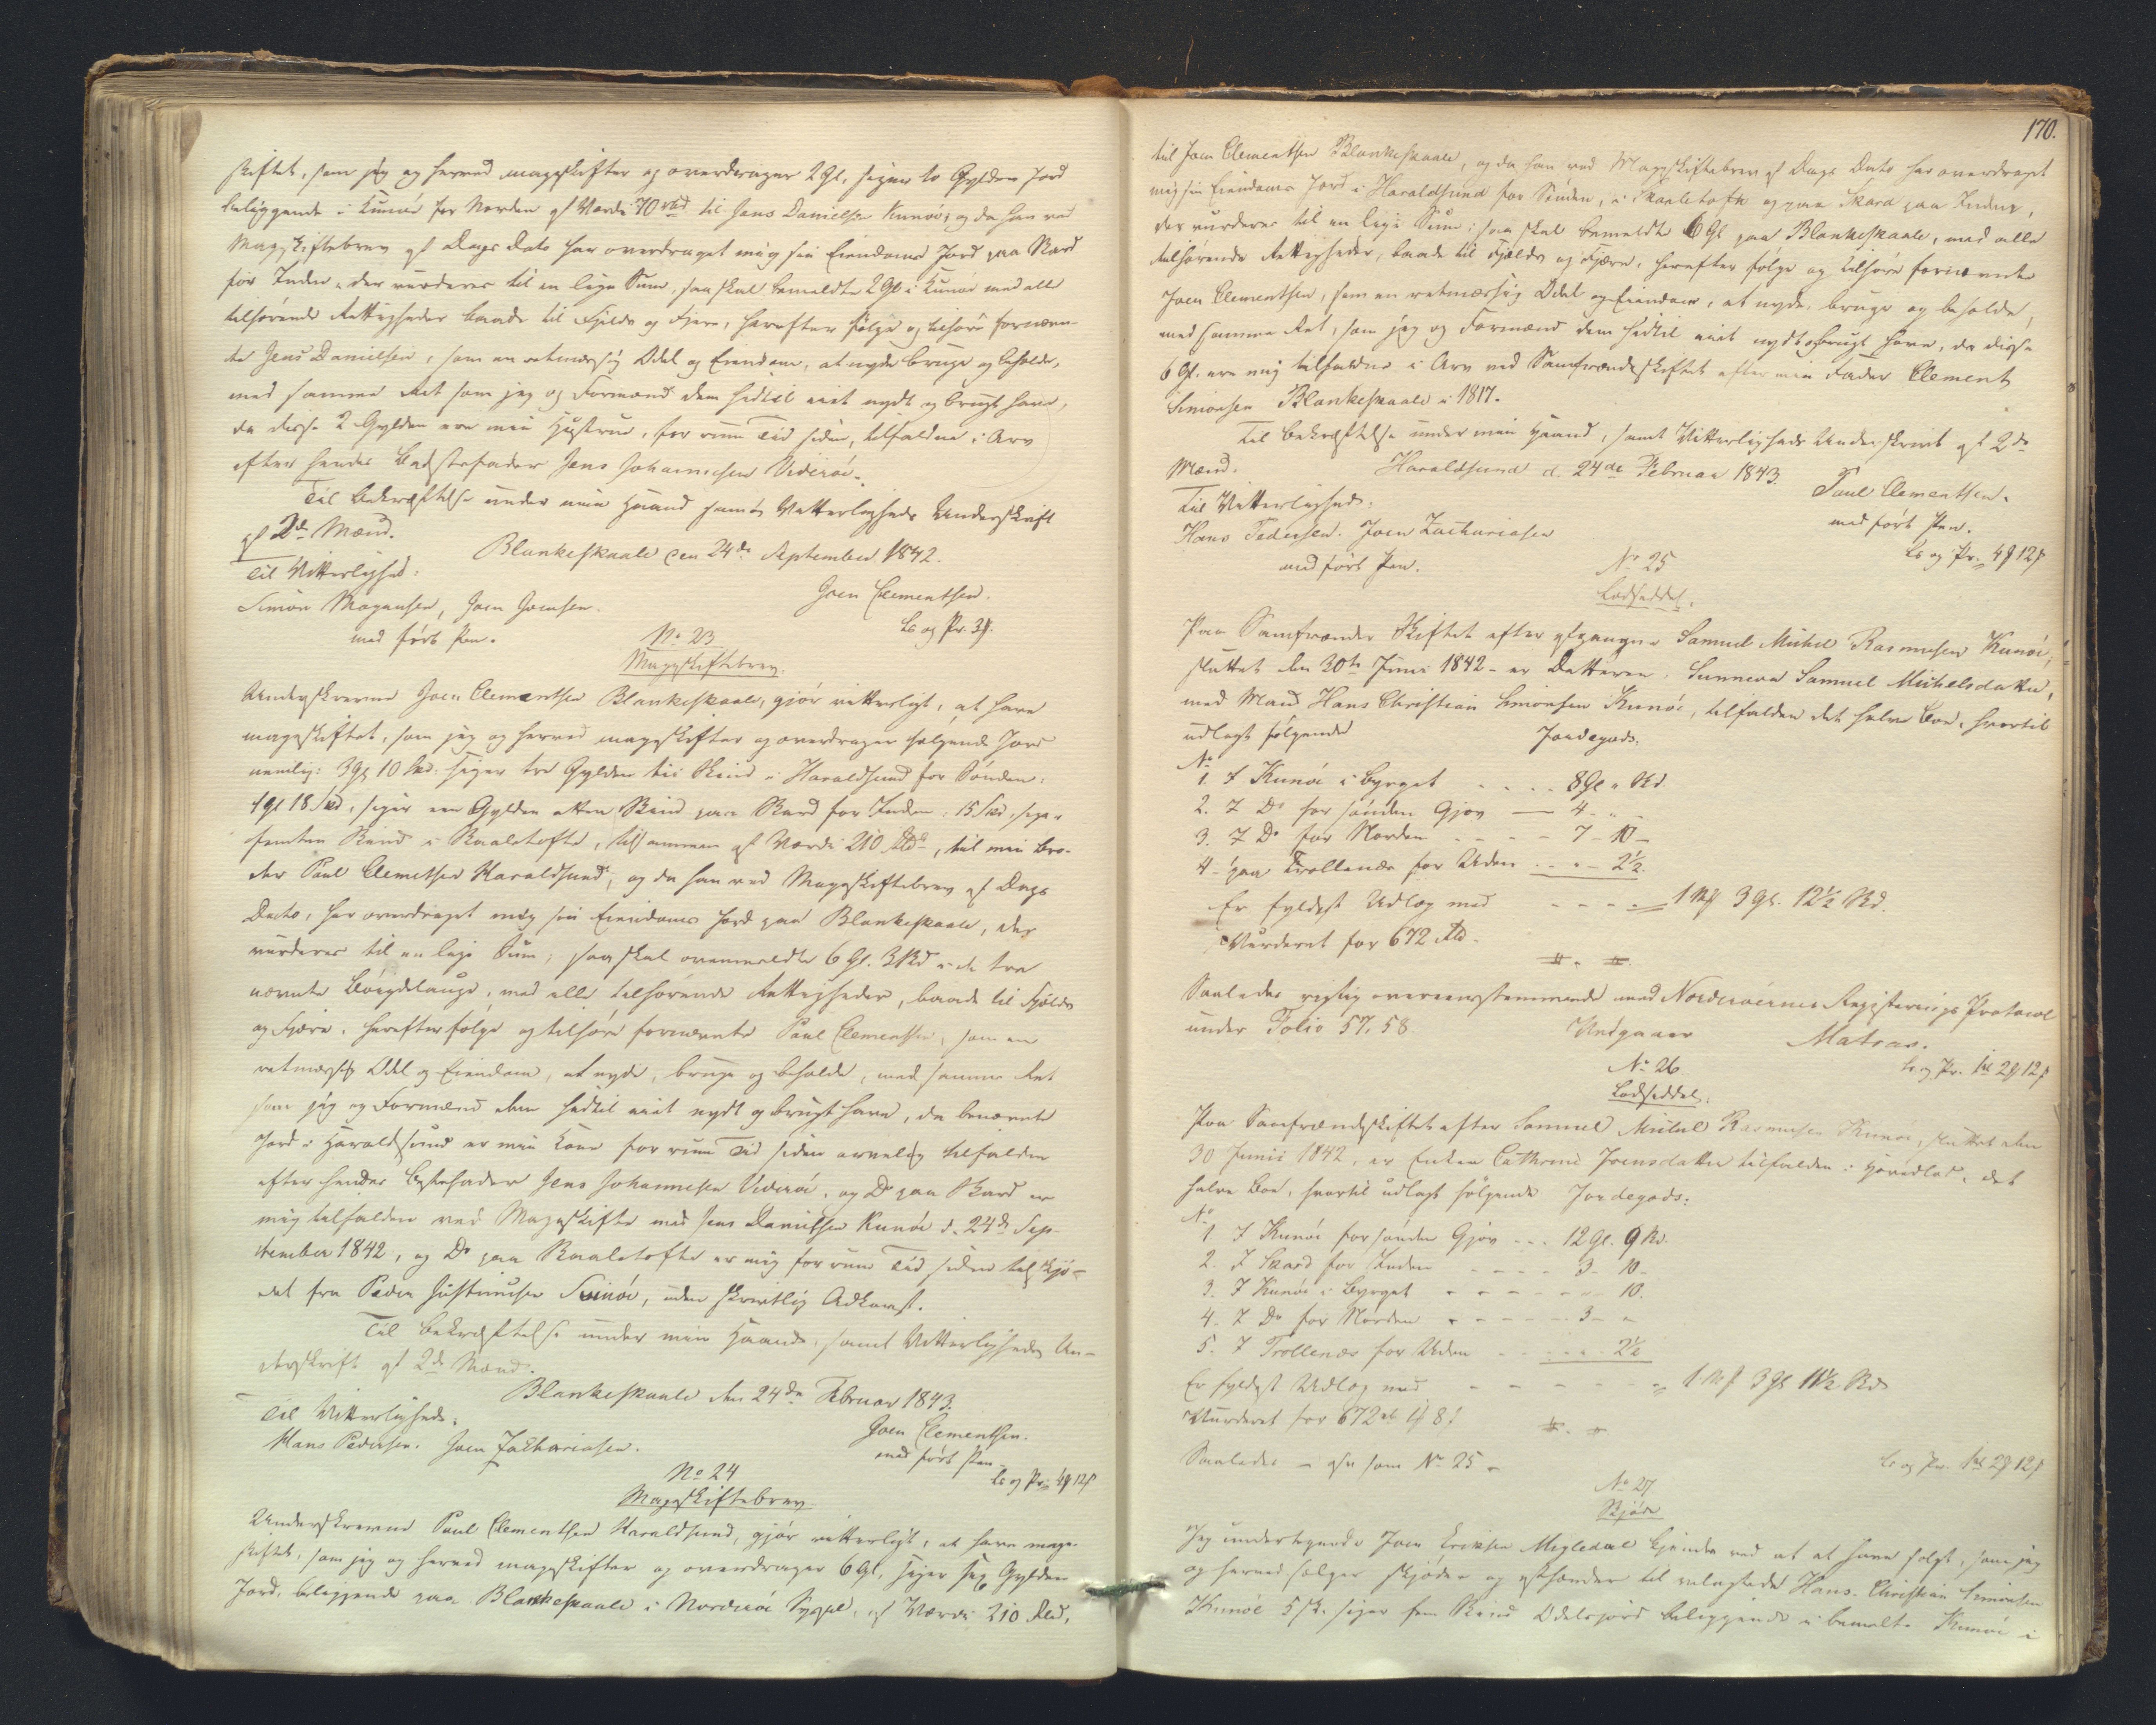 skiftet, som jeg og herved mageskifter og overdrager 2 Gl. siger to Gylden Jord
beliggende i Kunöe for Norden af Værdi 70 rbd til Jens Danielsen Kunöe; og da han ved
Mageskiftebrev af Dags Dato har overdraget mig sin Eiendoms Jord paa Skard
for Inden, der vurderes til en lige Sum, saa skal bemeldte 2 Gl i Kunöe med alle
tilhörende Rettigheder baade til Fjelds og Fjere, herefter fölge og tilhöre fornævn-
te Jens Danielsen, som en retmæssig Odel og Eiendom, at nyde bruge og beholde,
med samme Ret som jeg og Formænd dem hidtil eiet nydt og brugt have,
da disse 2 Gylden ere min Hustrue, for rum Tid siden, tilfaldne i Arv
efter hendes Bedstefader Jens Johannesen Videröe.
Til Bekræftelse under min Haand samt Vitterligheds Underskrift
af 2de Mænd.
Blankeskaale den 24de September 1842.
Til Vitterlighed:
Joen Clementsen.
Simon Magnusen, Joen Joensen.
med fört Pen.
Ls og Pr. 3#.
No 23
Mageskiftebrev.
Underskrevne Joen Clementsen Blankeskaale, gjör vitterligt, at have
mageskiftet, som jeg og herved mageskifter og overdrager fölgende Jord
nemlig: 3 Gl 10 Skd. siger tre Gylden tii Skind i Haraldsund for Sönden;
1 Gl 18 Skd, siger een Gylden atten Skind paa Skard for Inden; 15 Skd, siger
femten Skind i Skaaletofte, tilsammen af Værdi 210 Rbd, til min Bro-
der Paul Clemetsen Haraldsund, og da han ved Mageskiftebrev af Dags
Dato, har overdraget mig sin Eiendoms Jord paa Blankeskaale, der
vurderes til en lige Sum, saa skal ovenmeldte 6 Gl. 3 Skd i de tre
nævnte Böigdelauge, med alle tilhörende Rettigheder, baade til Fjelds
og Fjære, herefter fölge og tilhöre fornævnte Paul Clementsen, som en
retmæssig Odel og Eiendom, at nyde, bruge og beholde, med samme Ret
som jeg og Formænd dem hidtil eiet nydt og brugt have, da benævnte
Jord i Haraldsund er min Kone for rum Tid siden arvelig tilfalden
efter hendes Bestefader Jens Johannesen Videröe, og Do paa Skard er
mig tilfalden ved Mageskifte med Jens Danielsen Kunöe d. 24de Sep-
tember 1842, og Do paa Skaaletofte er mig for rum Tid siden tilskjö-
det fra Peder Justinusen Svinöe, uden skrivtlig Adkomst.
Til Bekræftelse under min Haand, samt Vitterligheds Un-
derskrift af 2de Mænd.
Blankeskaale den 24de Februar 1843.
Til Vitterlighed.
Joen Clementsen.
Hans Pedersen. Joen Zachariasen.
med fört Pen.
Ls og Pr. 4# 12ß
No 24
Mageskiftebrev.
Underskrevne Paul Clementsen Haraldsund, gjör vitterligt, at have mage-
skiftet, som jeg og herved mageskifter og overdrager 6 Gl, siger sex Gylden
Jord, beliggende paa Blankeskaale i Norderöe Syssel, af Værdi 210 Rbd,
170.
til Joen Clementsen Blankeskaale, og da han ved Mageskiftebrev af Dags Dato har overdraget
mig sin Eiendoms Jord i Haraldsund for Sönden, i Skaaletofte og paa Skard paa Inden,
der vurderes til en lige Sum; saa skal bemeldte 6 Gl paa Blankeskaale, med alle
tilhörende Rettigheder, baade til Fjelds og Fjære, herefter fölge og tilhöre fornævnte
Joen Clementsen, som en retmæssig Odel og Eiendom, at nyde, bruge og beholde,
med samme Ret, som jeg og Formænd dem hidtil eiet nydt og brugt have, da disse
6 Gl. ere mig tilfaldne i Arv ved Samfrændeskiftet efter min Fader Clement
Simonsen Blankeskaale i 1817.
Til Bekræftelse under min Haand, samt Vitterligheds Underskrivt af 2de
Mænd.
Haraldsund d. 24de Februar 1843.
Til Vitterlighed.
Paul Clementsen.
Hans Pedersen. Joen Zachariasen
med fört Pen.
med fört Pen.
Ls og Pr. 4# 12ß
No 25
Lodseddel.
Paa Samfrænder Skiftet efter afgangne Samuel Michel Rasmusen Kunöe,
sluttet den 30te Junii 1842 - er Datteren: Sunneva Samuel Michelsdatter,
med Mand Hans Christian Simonsen Kunöe, tilfalden det halve Boe, hvortil
udlagt fölgende
Jordegods.
No
1 I Kunöe i Byrget - - - - 8 Gl „ Skd.
2. I Do for sönden Gjov — 4 - „ -
3. I Do for Norden - - - - 7 - 10 -
4 - paa Trollenæs for Uden - - - 2½.
Er fyldest Udlæg med - - - - 1 Mk 3 Gl. 12½ Skd.
Vurderet for 672 Rbd.
Saaledes rigtig overeensstemmende med Norderöernes Registerings Protocol
under Folio 57. 58.
Udgaaer
Matras.
Ls og Pr. 1rbd 2# 12ß
No 26
Lodseddel.
Paa Samfrændeskiftet efter Samuel Michel Rasmusen Kunöe, sluttet den
30 Junii 1842, er Enken Cathrine Joensdatter tilfalden i Hovedlod, det
halve Boe, hvortil udlagt fölgende Jordegods:
No
1 I Kunöe for sönden Gjov - - - 12 Gl. 9 Skd.
2. I Skard for Inden - - - - 3 - 10 -
3. I Kunöe i Byrget - - - - - - 10.
4. I Do for Norden - - - - - 3 - „
5. I Trollenæs for Uden - - - - - 2½
Er fyldest Udlæg med - - - - - - 1 Mk 3 Gl 11½ Skd
Vurderet for 672 rbd 1# 8ß
Saaledes - som No 25 -
Ls og Pr. 1rbd 2# 12ß
No 27
Skjöde
Jeg undertegnede Joen Eriksen Migledal kjender ved at at have solgt, som jeg
og herved sælger skjöder og afhænder til velagtede Hans Christian Simonsen
Kunöe 5 sk. siger fem Skind Odelsjord beliggende i bemeldte Kunöe i